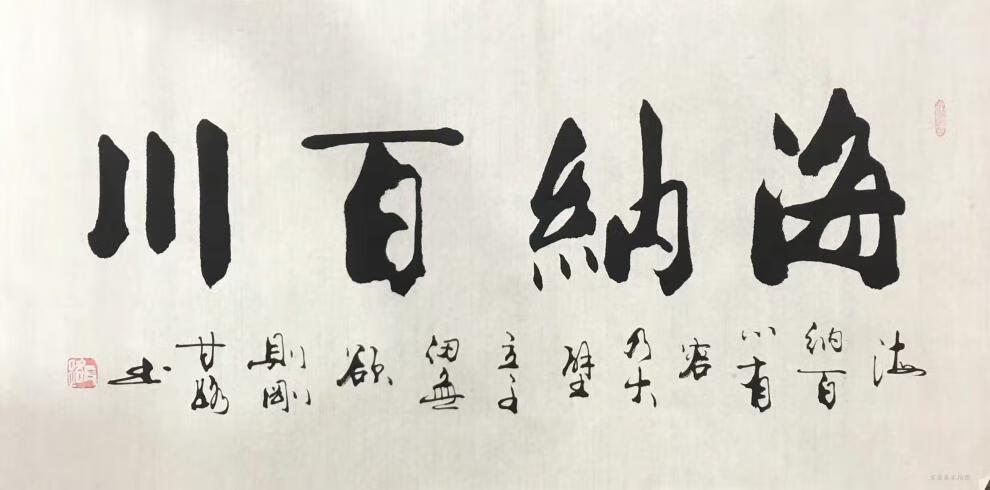 海納百川
海納百川有容乃大壁立千仞無欲則剛 甘 书